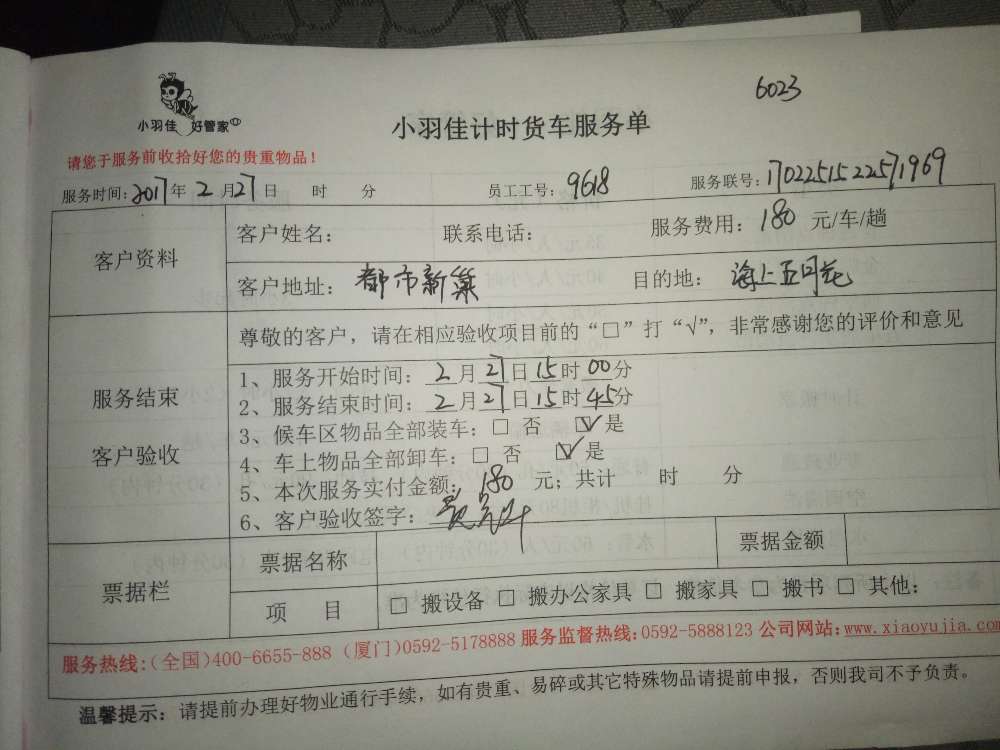 6023
小羽佳 好管家
小羽佳计时货车服务单
请您于服务前收拾好您的贵重物品！
服务时间：2017年 2 月27日 时 分 员工工号：9618 服务联号：1702251522571969
客户资料
客户姓名： 联系电话： 服务费用：180 元/车/趟
客户地址：都市新巢 目的地：海上五月花
服务结束
客户验收
尊敬的客户，请在相应验收项目前的“□”打“√”，非常感谢您的评价和意见
1、服务开始时间：2月27日15时00分
2、服务结束时间：2月27日15时45分
3、候车区物品全部装车：□ 否 ☑是
4、车上物品全部卸车：□ 否 ☑是
5、本次服务实付金额：180 元；共计 时 分
6、客户验收签字：
票据栏
票据名称 票据金额
项 目 □ 搬设备 □ 搬办公家具 □ 搬家具 □ 搬书 □ 其他：
服务热线:(全国)400-6655-888 (厦门)0592-5178888 服务监督热线:0592-5888123 公司网站:www.xiaoyujia.com
温馨提示：请提前办理好物业通行手续，如有贵重、易碎或其它特殊物品请提前申报，否则我司不予负责。